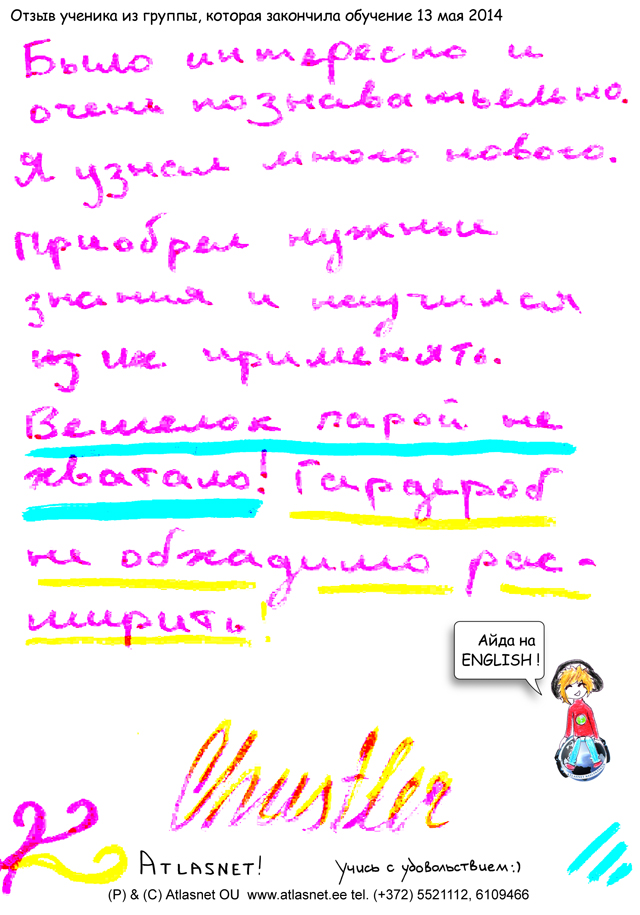 Отзыв ученика из группы, которая закончила обучение 13 мая 2014
Было интересно и
очень познавательно.
Я узнал много нового.
Приобрел нужные
знания и научился
из их применять.
Вешелок парой не
хватало! Гардероб
не обхадимо рас-
ширить!
Айда на
ENGLISH !
Chustler
ATLASNET!
Учись с удовольствием:)
(P) & (C) Atlasnet OU www.atlasnet.ee tel. (+372) 5521112, 6109466